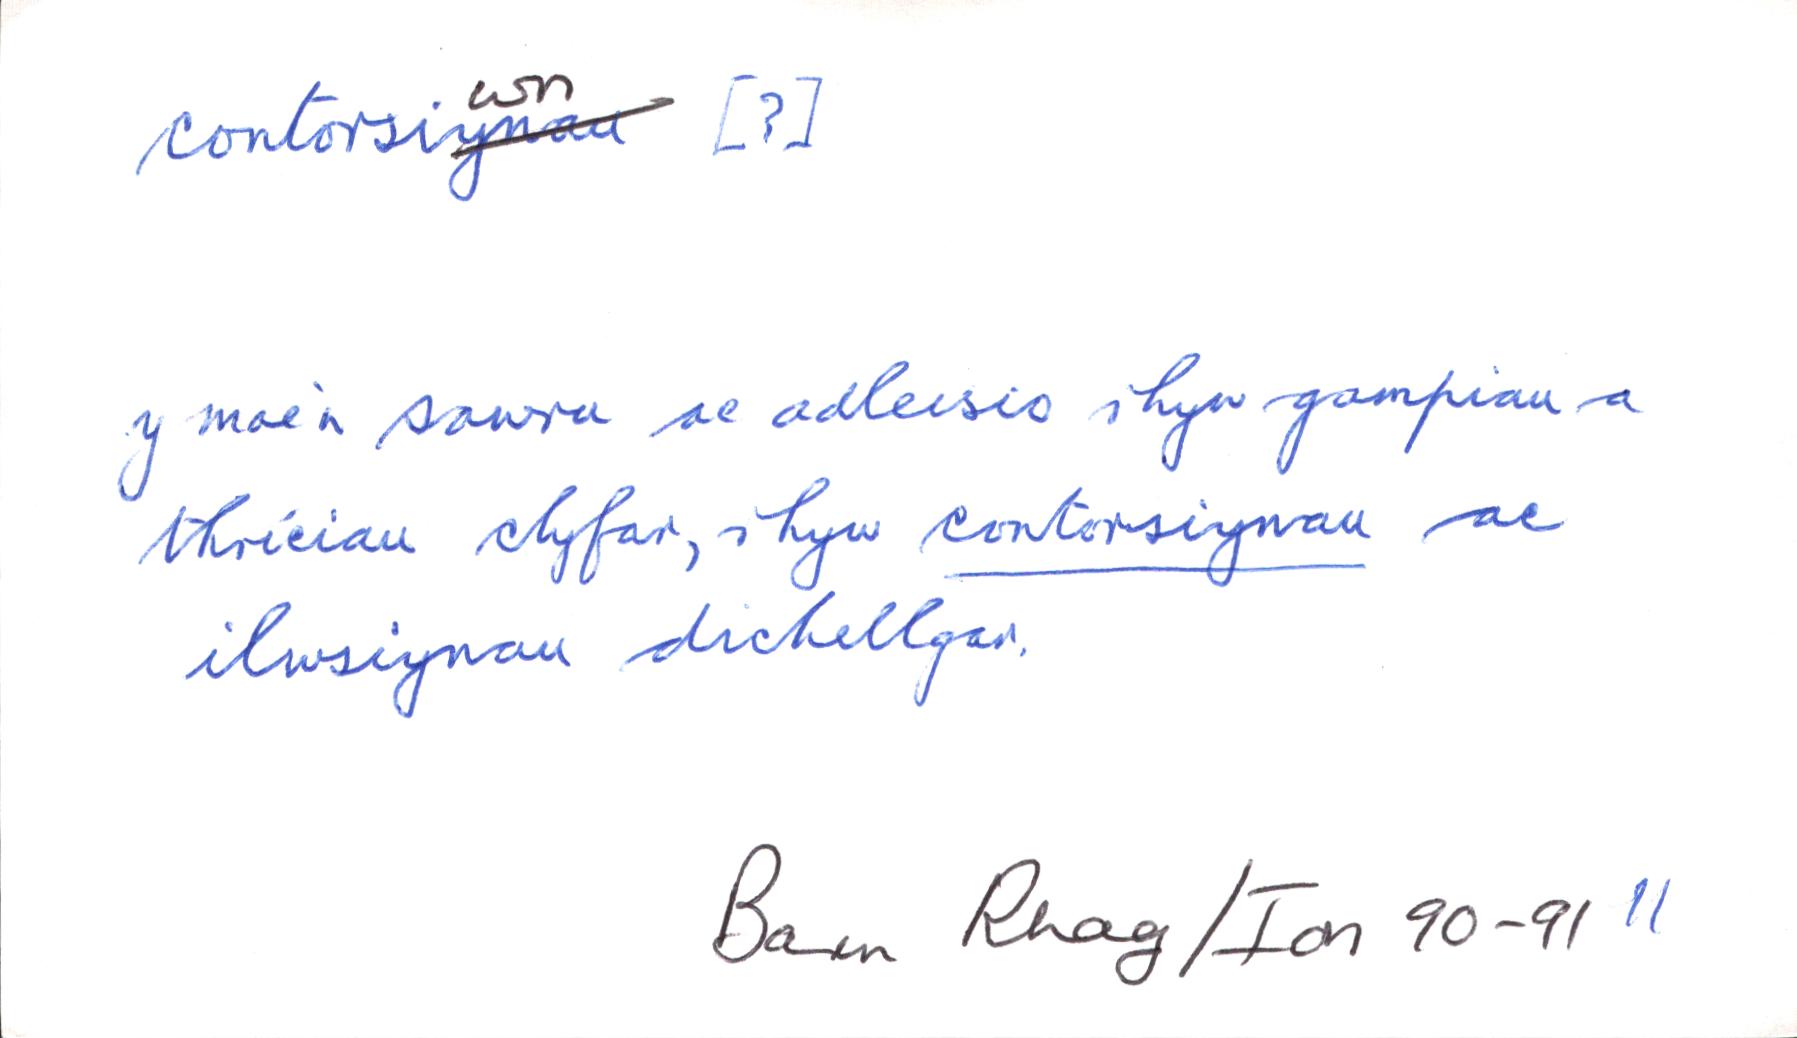 contorsiynau wn [?]
y mae'n sawru ac adleisio rhyw gampiau a
thriciau clyfar, rhyw contorsiynau ac
ilwsiynau dichellgar.
Barn Rhag/Ion 90-91 11